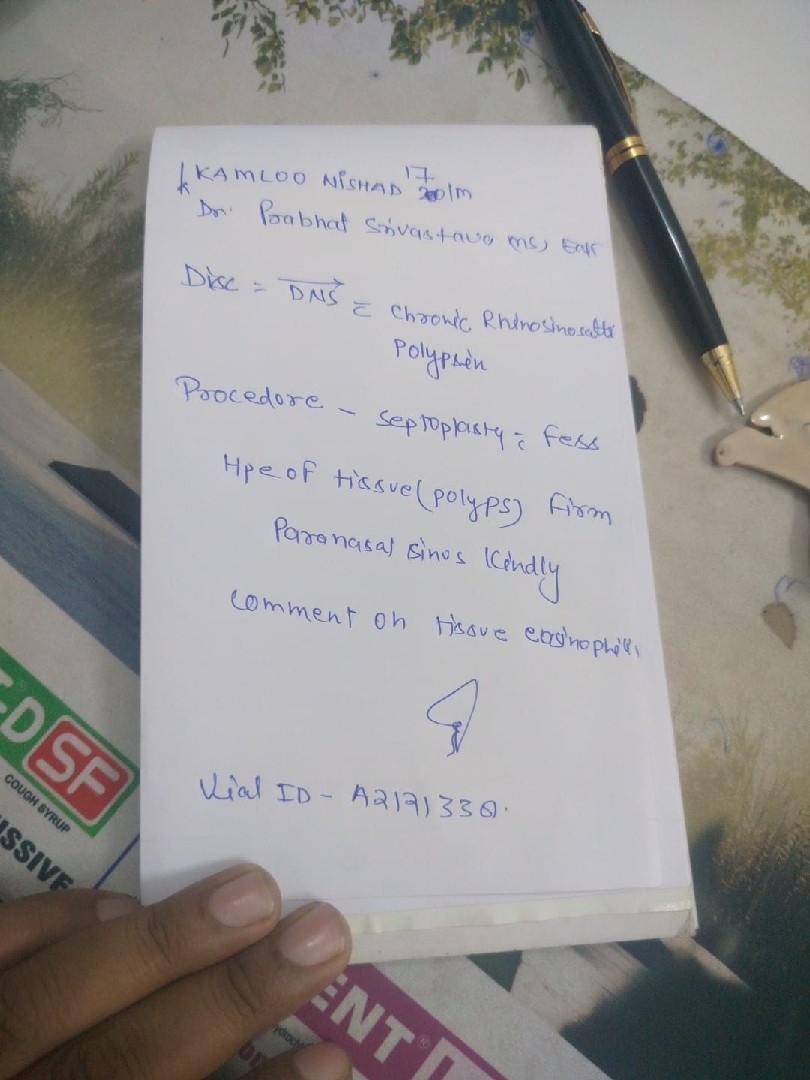 KAMLOO NISHAD 17/m
Dr. Prabhat Srivastava (ms) Ent
Disc = DNS = Chronic Rhinosinosatts
Polypsin
Procedore - Septoplasty = Fess
Hpe of tissue (polyps) firm
Paranasal sinos Kindly
comment on tissue eosinophills
Vial ID -
D SF
COUGH SYRUP
ISSIVE
ENT